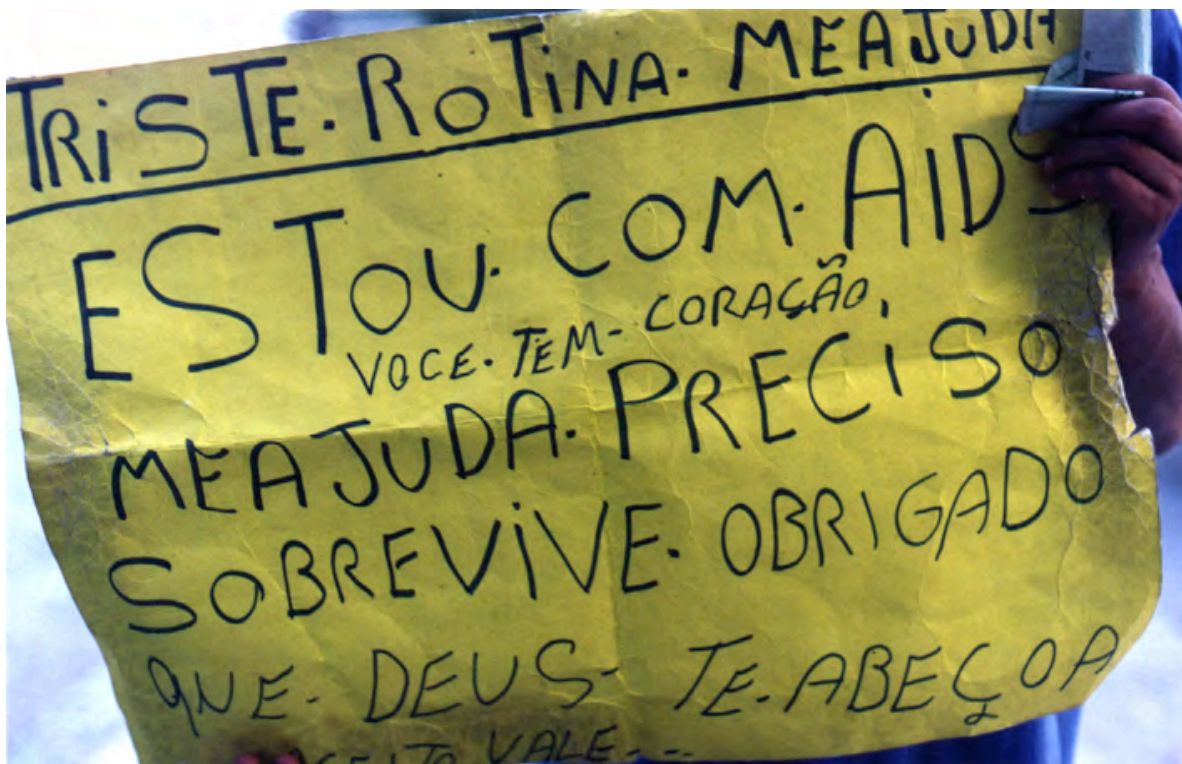 TRISTE. ROTINA. ME AJUDA
ESTOU. COM. AIDS
VOCE. TEM- CORAÇÃO.
ME AJUDA. PRECISO
SOBREVIVE. OBRIGADO
QUE. DEUS- TE. ABEÇOA
VALE...